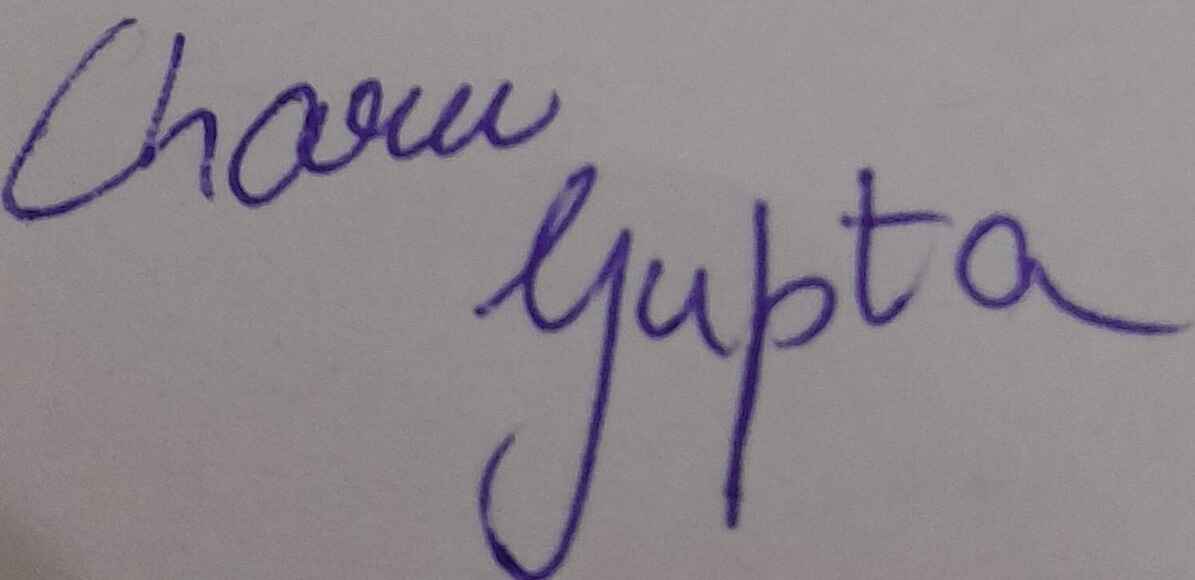 Charu
Gupta